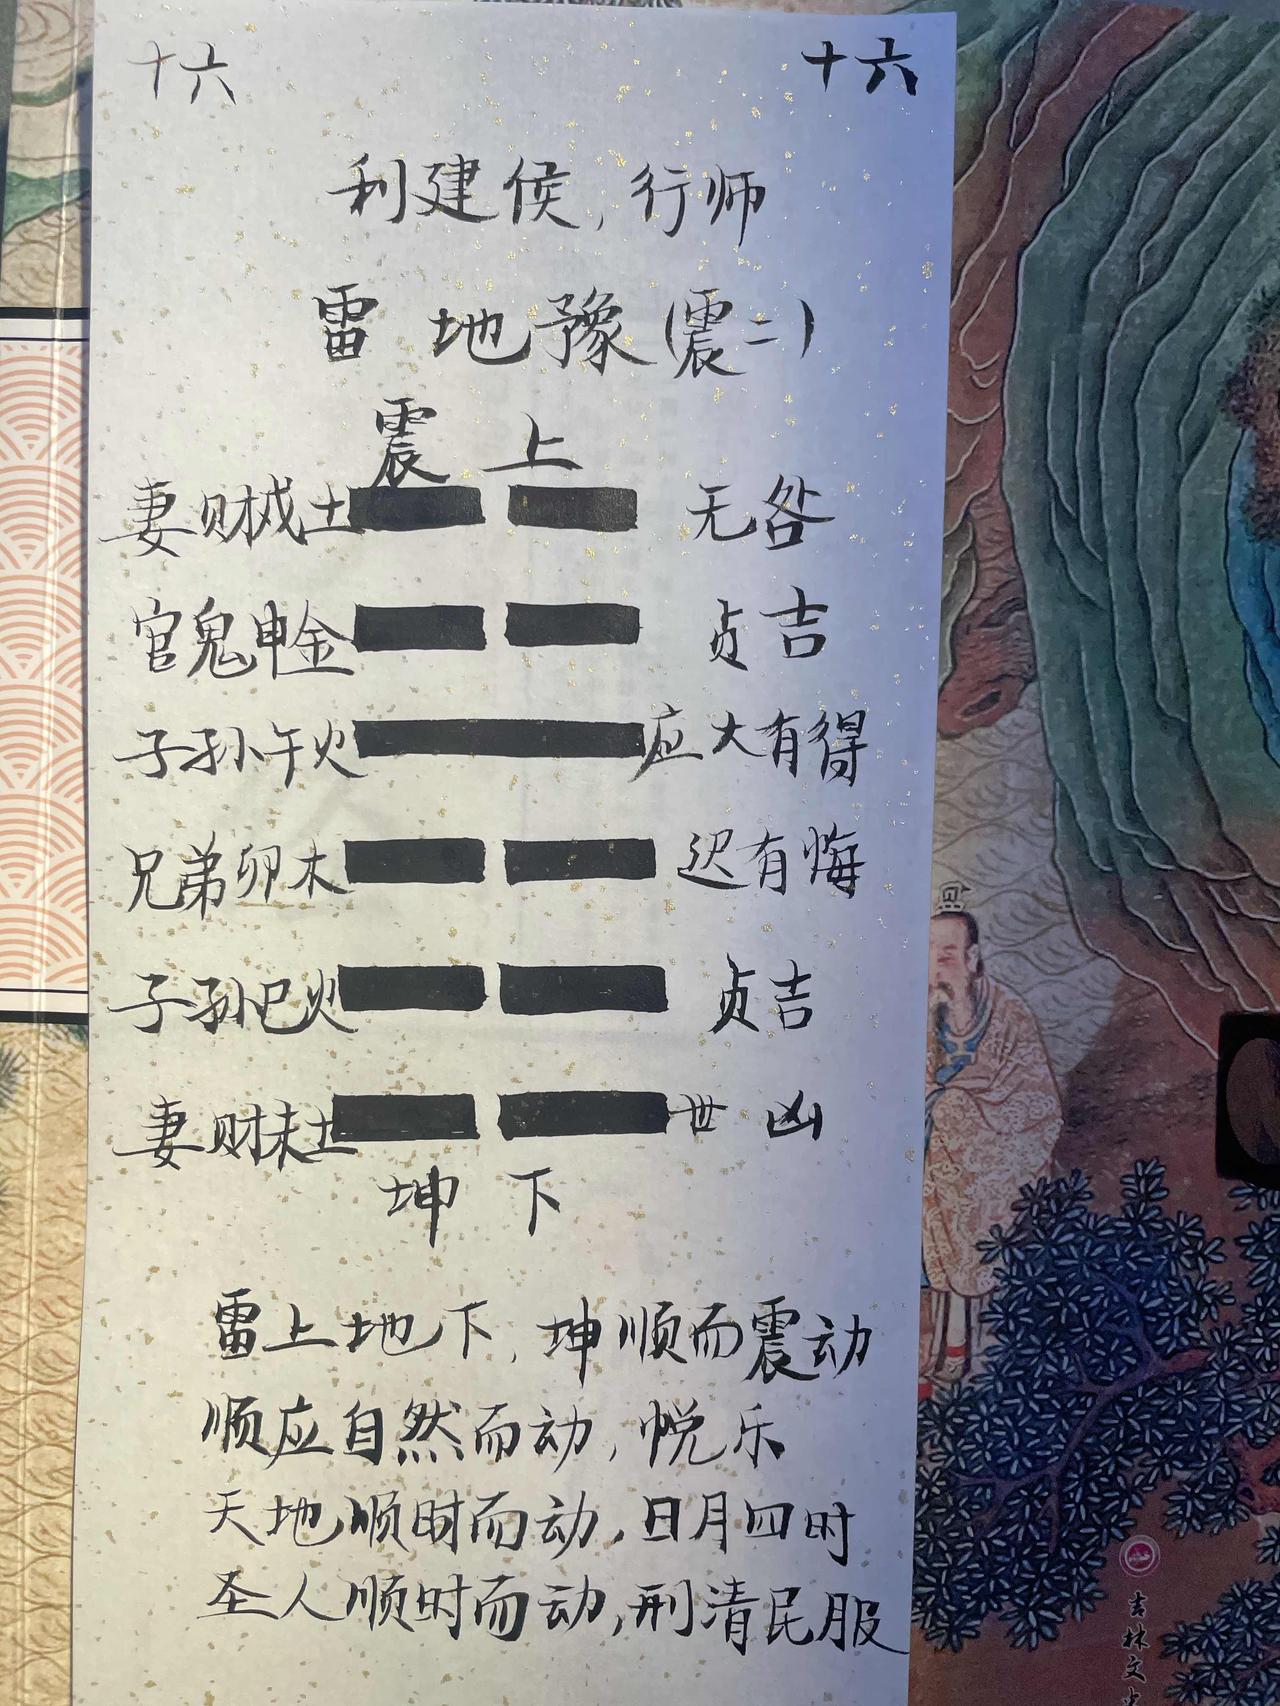 十六 十六
利建侯,行师
雷地豫(震二)
震上
妻财戌土 无咎
官鬼申金 贞吉
子孙午火 应大有得
兄弟卯木 迟有悔
子孙巳火 贞吉
妻财未土 世凶
坤下
雷上地下,坤顺而震动
顺应自然而动,悦乐
天地顺时而动,日月四时
圣人顺时而动,刑清民服
吉林文